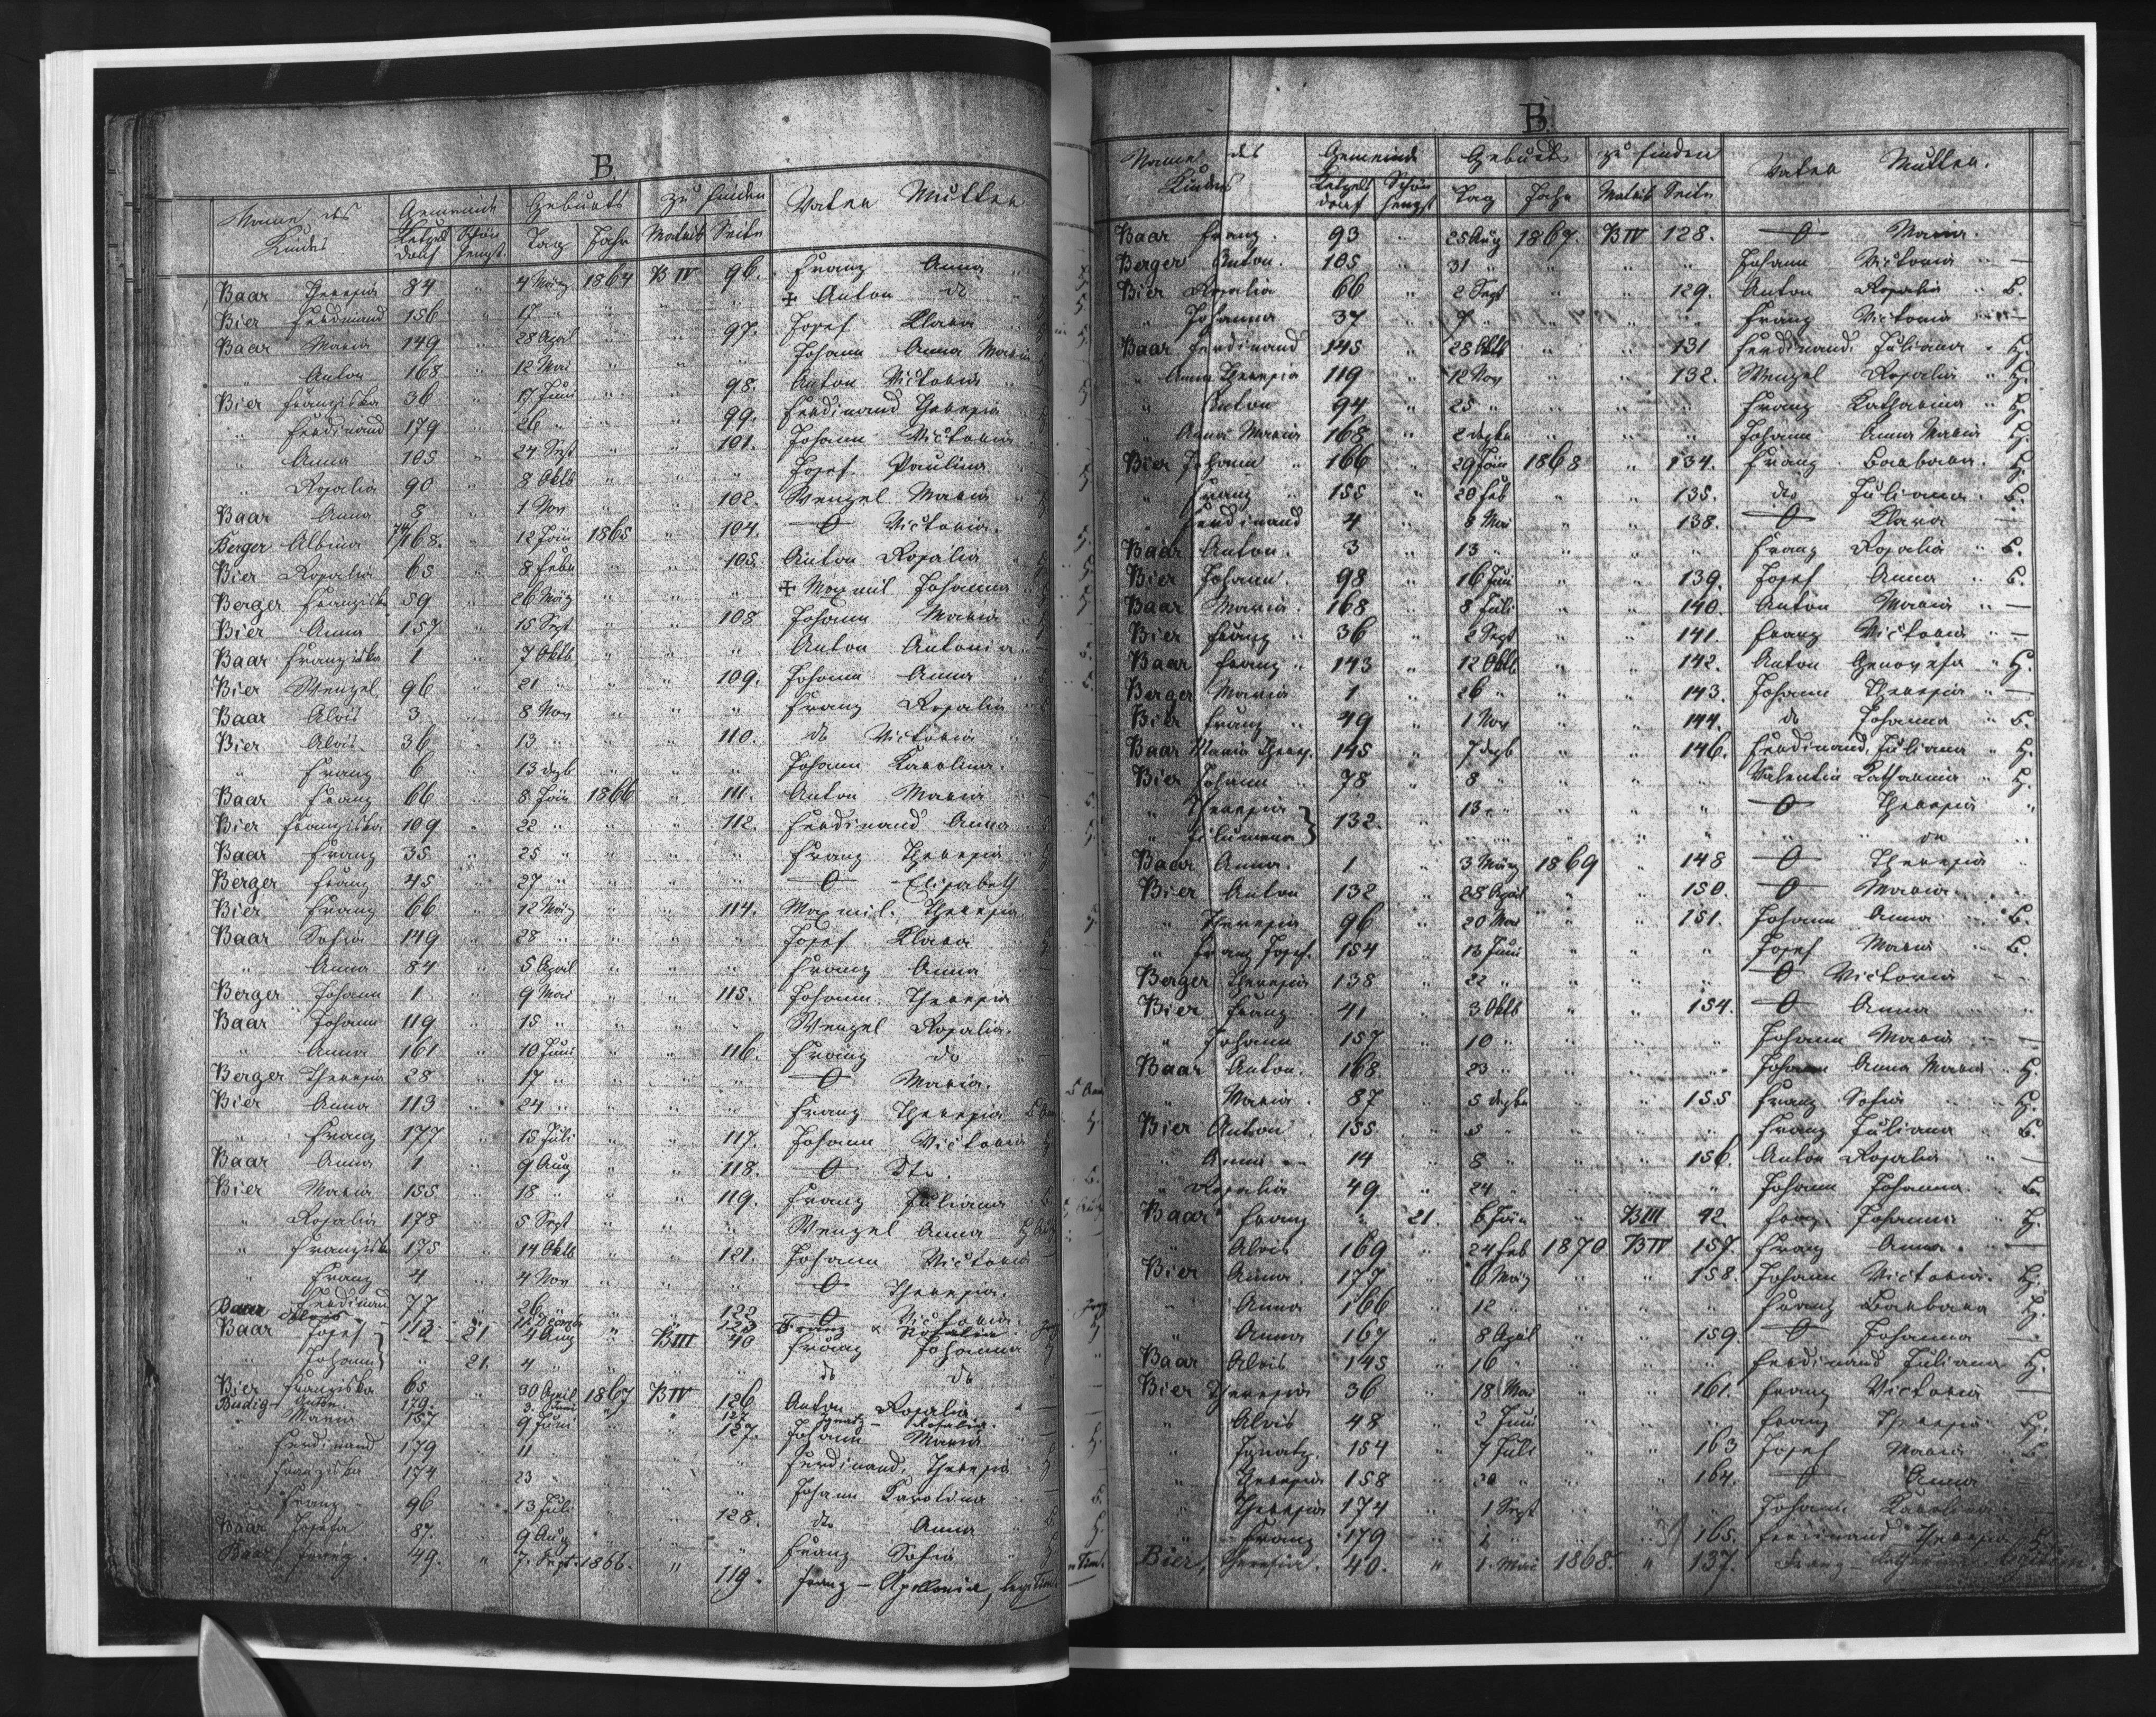 B.
Name des Kindes Gemeinde Geburts zu finden Vater Mutter
Ketzelsdorf Schönhengst Tag Jahr Matrik Seite
Baar Theresia 84 " 4 März 1864 B IV 96. Franz Anna "
Bier Ferdinand 156 " 17 " " " " ✠ Anton do "
Baar Maria 149 " 28 April " " 97. Josef Klara "
" Anton 168 " 12 Mai " " " Johann Anna Maria
Bier Franziska 36 " 17 Juni " " 98. Anton Victoria "
" Ferdinand 179 " 26 " " " 99. Ferdinand Theresia
" Anna 105 " 24 Sept " " 101. Johann Victoria
" Rosalia 90 " 8 Oktb " " " Josef Paulina
Baar Anna 8 " 1 Nov " " 102. Wenzel Maria
Berger Albina 74/168. " 12 Jän 1865 " 104. O Victoria.
Bier Rosalia 65 " 8 Febr " " 105. Anton Rosalia
Berger Franziska 59 " 26 März " " " ✠ Maxmil Johanna
Bier Anna 157 " 15 Sept " " 108 Johann Maria
Baar Franziska 1 " 7 Oktb " " " Anton Antonia
Bier Wenzel 96 " 21 " " " 109. Johann Anna
Baar Alois 3 " 8 Nov " " " Franz Rosalia
Bier Alois 36 " 13 " " " 110. do Victoria
" Franz 6 " 13 dzb " " " Johann Karolina.
Baar Franz 66 " 8 Jän 1866 " 111. Anton Maria
Bier Franziska 109 " 22 " " " 112. Ferdinand Anna
Baar Franz 35 " 25 " " " " Franz Theresia
Berger Franz 45 " 27 " " " " O Elisabeth
Bier Franz 66 " 12 März " " 114. Maxmil. Theresia.
Baar Sofia 149 " 28 " " " " Josef Klara
" Anna 84 " 5 April " " " Franz Anna
Berger Johann 1 " 9 Mai " " 115. Johann Theresia
Baar Johann 119 " 15 " " " " Wenzel Rosalia.
" Anna 161 " 10 Juni " " 116. Franz do
Berger Theresia 28 " 17 " " " " O Maria.
Bier Anna 113 " 24 " " " " Franz Theresia
" Franz 177 " 15 Juli " " 117. Johann Victoria
Baar Anna 1 " 9 Aug " " 118. O Dto.
Bier Maria 155 " 18 " " " 119. Franz Juliana
" Rosalia 178 " 5 Sept " " " Wenzel Anna
" Franziska 175 " 14 Oktb " " 121. Johann Victoria
" Franz 4 " 4 Nov " " " O Theresia.
" Ferdinand 77 " 26 " " " 122 O Victoria.
Baar Alois 113 " Dezemb " " 123 Franz Rosalia
Baar Josef } " 21. 4 Aug " B III 40 Franz Johanna
" Johann } " 21. 4 " " " " do do
Bier Franziska 65 " 30 April 1867 B IV 126 Anton Rosalia
Budig Anton. 179. 3. Juni " " 127 Ignatz - Rosalia.
" Maria 157 " 9 Juni " " 127. Johann Maria
" Ferdinand 179 " 11 " " " " Ferdinand. Theresia
" Franziska 174 " 23 " " " " Johann Karolina
" Franz 96 " 13 Juli " " 128. dto Anna
Baar Josefa 87. " 9 Aug " " " Franz Sofia
Baar Franz. 49. " 7. Sept. 1866. " 119. Franz - Apollonia, legitim.
B.
Name des Kindes Gemeinde Geburts zu finden Vater Mutter.
Ketzelsdorf Schönhengst Tag Jahr Matrik Seite
Baar Franz. 93 " 25 Aug 1867. B IV 128. O Maria.
Berger Anton. 105 " 31 " " " " Johann Victoria " —
Bier Rosalia 66 " 2 Sept " " 129. Anton Rosalia " B.
" Johanna 37 " 7 " " " " Franz Victoria " —
Baar Ferdinand 145 " 28 Oktb " " 131 Ferdinand. Juliana " H.
" Anna Theresia 119 " 12 Nov " " 132. Wenzel Rosalia " H.
" Anton 94 " 25 " " " " Franz Katharina " H.
" Anna Maria 168 " 2 dezbr " " " Johann Anna Maria H.
Bier Johann 166 " 29 Jän 1868 " 134. Franz Barbara. H.
" Franz 155 " 20 Feb " " 135. dto Juliana. B.
" Ferdinand 4 " 8 Mai " " 138. O Klara —
Baar Anton. 3 " 13 " " " " Franz Rosalia " B.
Bier Johann. 98 " 16 Juni " " 139. Josef Anna " B.
Baar Maria. 168 " 8 Juli " " 140. Anton Maria " —
Bier Franz " 36 " 2 Sept " " 141. Franz Victoria " —
Baar Franz " 143 " 12 Oktb " " 142. Anton Genovefa " H.
Berger Maria 1 " 26 " " " 143. Johann Theresia " —
Bier Franz " 49 " 1 Nov " " 144. do Johanna " B.
Baar Maria Theres. 145 " 7 dezb " " 146. Ferdinand, Juliana " H.
Bier Johann 78 " 8 " " " " Valentin Katharina " H.
" Theresia } 132. " 13. " " " " O Theresia "
" Filumena } " " " " " " do "
Baar Anna. 1 " 3 März 1869 " 148 O Theresia "
Bier Anton 132 " 28 April " " 150. O Maria. "
" Theresia 96 " 20 Mai " " 151. Johann Anna " B.
" Franz Josef. 154 " 13 Juni " " " Josef Maria " B.
Berger Theresia 138 " 22 " " " " O Victoria
Bier Franz 41 " 3 Oktb " " 154. O Anna "
" Johann 157 " 10 " " " " Johann Maria —
Baar Anton. 168 " 23 " " " " Johann Anna Maria " H.
" Maria. 87 " 5 dezbr " " 155 Franz Sofia " H.
Bier Anton 155 " 5 " " " " Franz Juliana " B.
" Anna 14 " 8 " " " 156. Anton Rosalia " —
" Rosalia 49 " 24 " " " " Johann Johanna. B.
Baar Franz " 21. 6 Jän " B III 42 Franz Johanna " H.
" Alois 169 " 24 Feb 1870 B IV 157. Franz Anna. —
Bier Anna. 177 " 6 März " " 158. Johann Victoria. H.
" Anna 166 " 12 " " " " Franz Barbara H.
" Anna 167 " 8 April " " 159. O Johanna —
Baar Alois 145 " 16 " " " " Ferdinand Juliana H.
Bier Theresia 36 " 18 Mai " " 161. Franz Victoria —
" Alois 48 " 2 Juni " " " Franz Theresia H.
" Ignatz. 154 " 7 Juli " " 163 Josef Maria B.
" Theresia 158 " 20 " " " 164. O Anna
" Theresia 174 " 1 Sept " " " Johann Karolina
" Franz 179 " " " " 165. Ferdinand Theresia
Bier, Theresia. 40. " 1. Mai 1868. " 137. Franz - legitim.